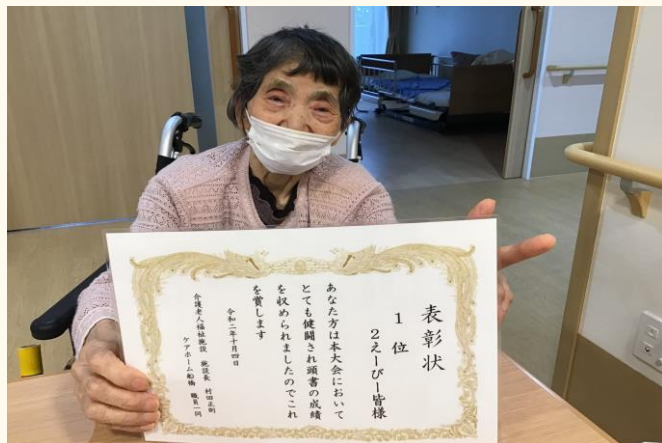 表彰状
1位
2えーびー皆様
あなた方は本大会において
とても健闘され頭書の成績
を収められましたのでこれ
を賞します
令和二年十月四日
介護老人福祉施設 施設長 村田正則
ケアホーム船橋 職員一同